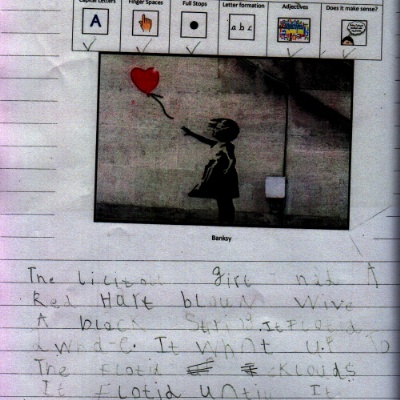 Capital Letters Finger Spaces Full Stops Letter formation Adjectives Does it make sense?
A a b c
Banksy
The girl A
Red Hart bloun wive
A black String. It Flotid
It whnt up To
The Flotid cKlouds
It Flotid until It